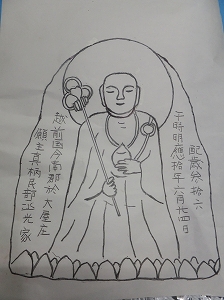 拾六
于時明應拾年六月廿四日
越前国今南郡於大屋庄
願主真柄民部丞光家